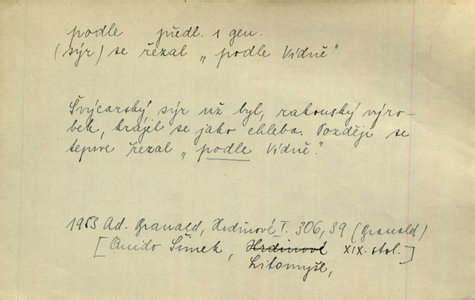 podle předl. s gen.
(sýr) se řezal „podle Vídně"
Švýcarský sýr už byl, rakouský výro-
bek, krájel se jako chleba. Později se
teprve řezal „podle Vídně."
1953 Ad. Branald, Hrdinové I. 306, 39 (Branald)
[Quido Šimek, Hrdinové XIX. stol.]
Litomyšl,